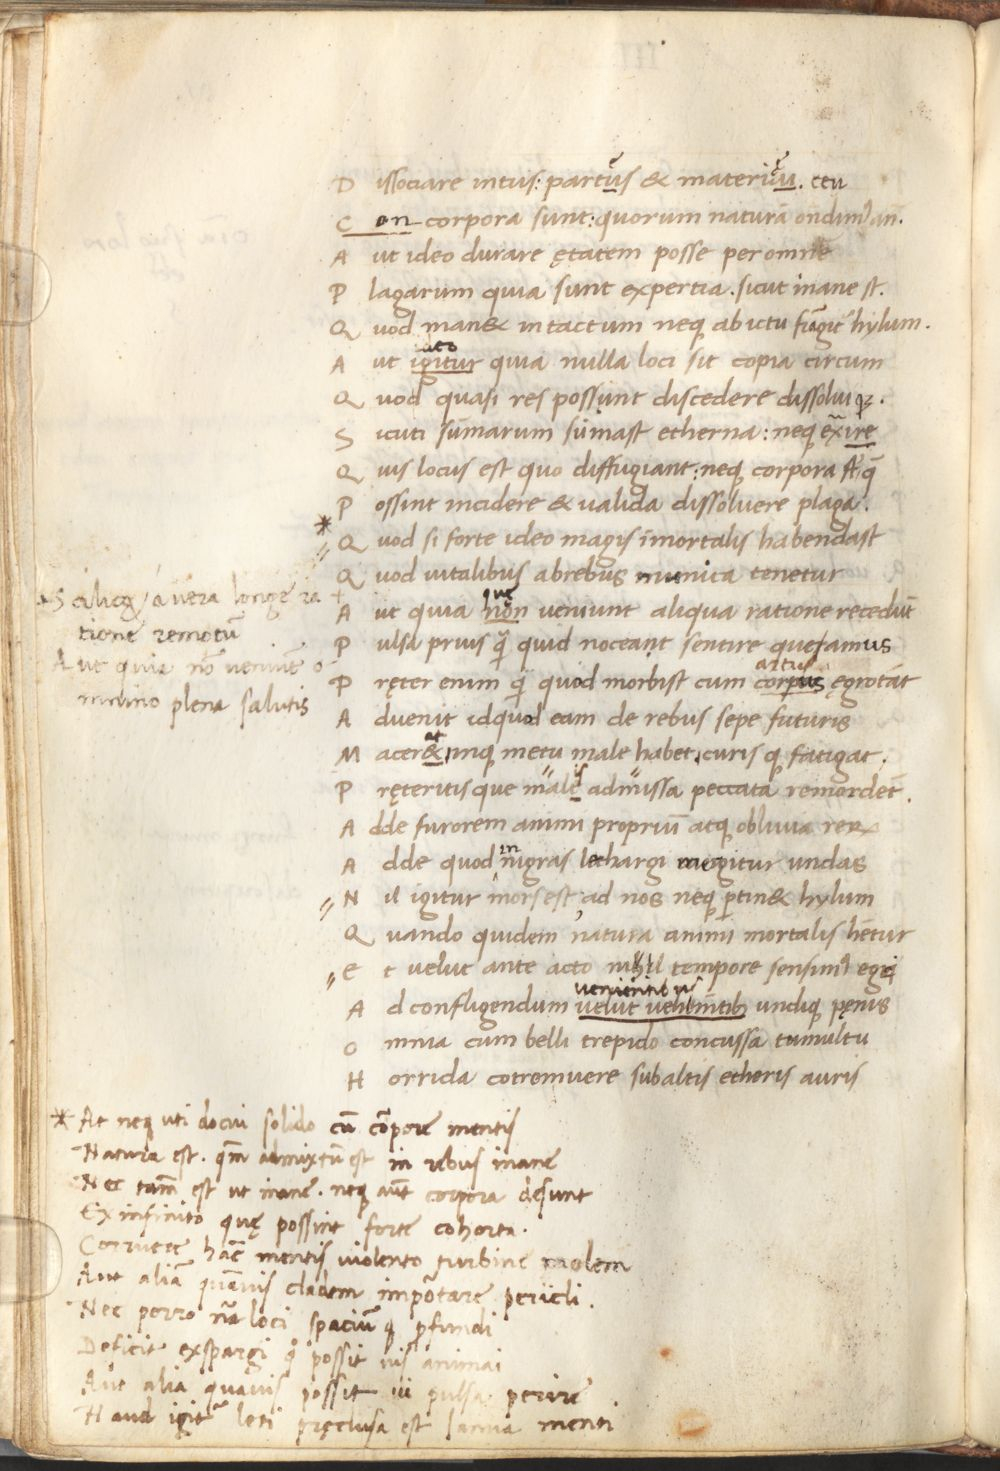 D issociare intus: partus & materiu. ceu
C on corpora sunt: quorum naturā ondim᾽ an̄.
A ut ideo durare ętatem posse per omne
P lagarum quia sunt expertia. sicut inane st.
Q uod man& intactum neq; ab ictu fūgit hylum.
A ut igitur quia nulla loci sit copia circum
Q uod quasi res possunt discedere dissolui q;.
S icuti sūmarum sūmast etherna: neq; exire
Q uis locus est quo diffugiant: neq; corpora st q̄
P ossint incidere & ualida dissoluere plaga.
* Q uod si forte ideo magis īmortalis habendast
Q uod uitalibus ab rebus munita tenetur
A ut quia non ueniunt aliqua ratione recedūt
P ulsa prius q̄ quid noceant sentire queamus
artus
P ręter enim q̄ quod morbist cum corpus ęgrotāt
A duenit id quod eam de rebus sepe futuris
M acer& inq; metu male habet, curis q; fatigat.
P ręteritisque male admissa peccata remordēt.
A dde furorem animi propriū atq; obliuia rerꝝ
in
A dde quod nigras lethargi mergitur undas
N il igitur mors est, ad nos neq; ꝑtin& hylum
Q uando quidem natura animi mortalis hētur
E t uelut ante acto nihil tempore sensim᾽ egri
uenientibus
A d confligendum uelut uenientib; undiq; pęnis
O mnia cum belli trepido concussa tumultu
H orrida cōtremuere sub altis etheris auris
S cilicȝ a uera longe ra
tione remotū
Aut quia nō ueniūt o
mnino plena salutis
* At neq; uti docui solido cū corpore mentis
Natura est. qm̄ admixtū est in rebus inane
Nec tam̄ est ut inane. neq; aut̄ corpora desunt
Ex infinito quę possint forte cohorta.
Corruere hāc mentis uiolento turbine molem
Aut aliā quāuis cladem importare pericli.
Nec porro nā loci spaciū q; ꝓfundi
Deficit expargi q° possit uis animai
Aut alia quauis possit ui pulsa perire
Haud igit̄ leti pręclusa est ianua menti.